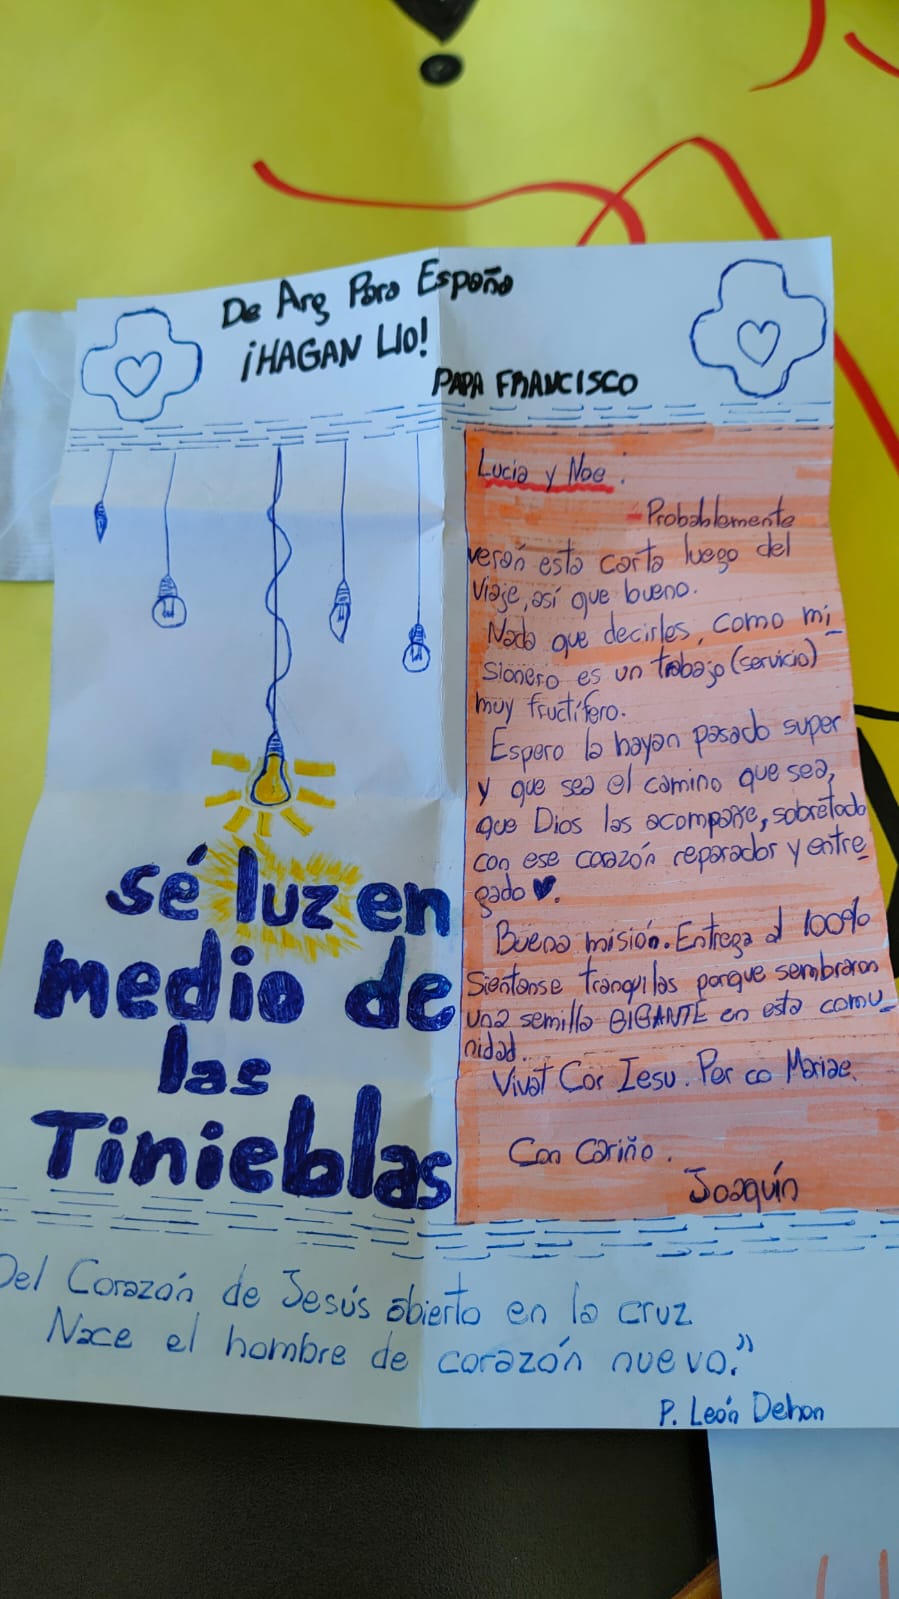 De Arg Para España
¡HAGAN LIO!
PAPA FRANCISCO
Lucia y Noe:
- Probablemente
verán esta carta luego del
viaje, así que bueno.
Nada que decirles, como mi_
sionero es un trabajo (servicio)
muy fructífero.
Espero la hayan pasado super
y que sea el camino que sea,
que Dios las acompañe, sobretodo
con ese corazón reparador y entre_
gado ♥.
Buena misión. Entrega al 100%
Sientanse tranquilas porque sembraron
una semilla GIGANTE en esta comu_
nidad.
Vivat Cor Iesu. Per co Mariae.
Con cariño.
Joaquín
sé luz en
medio de
las
Tinieblas
Del Corazón de Jesús abierto en la cruz
Nace el hombre de corazón nuevo."
P. León Dehon